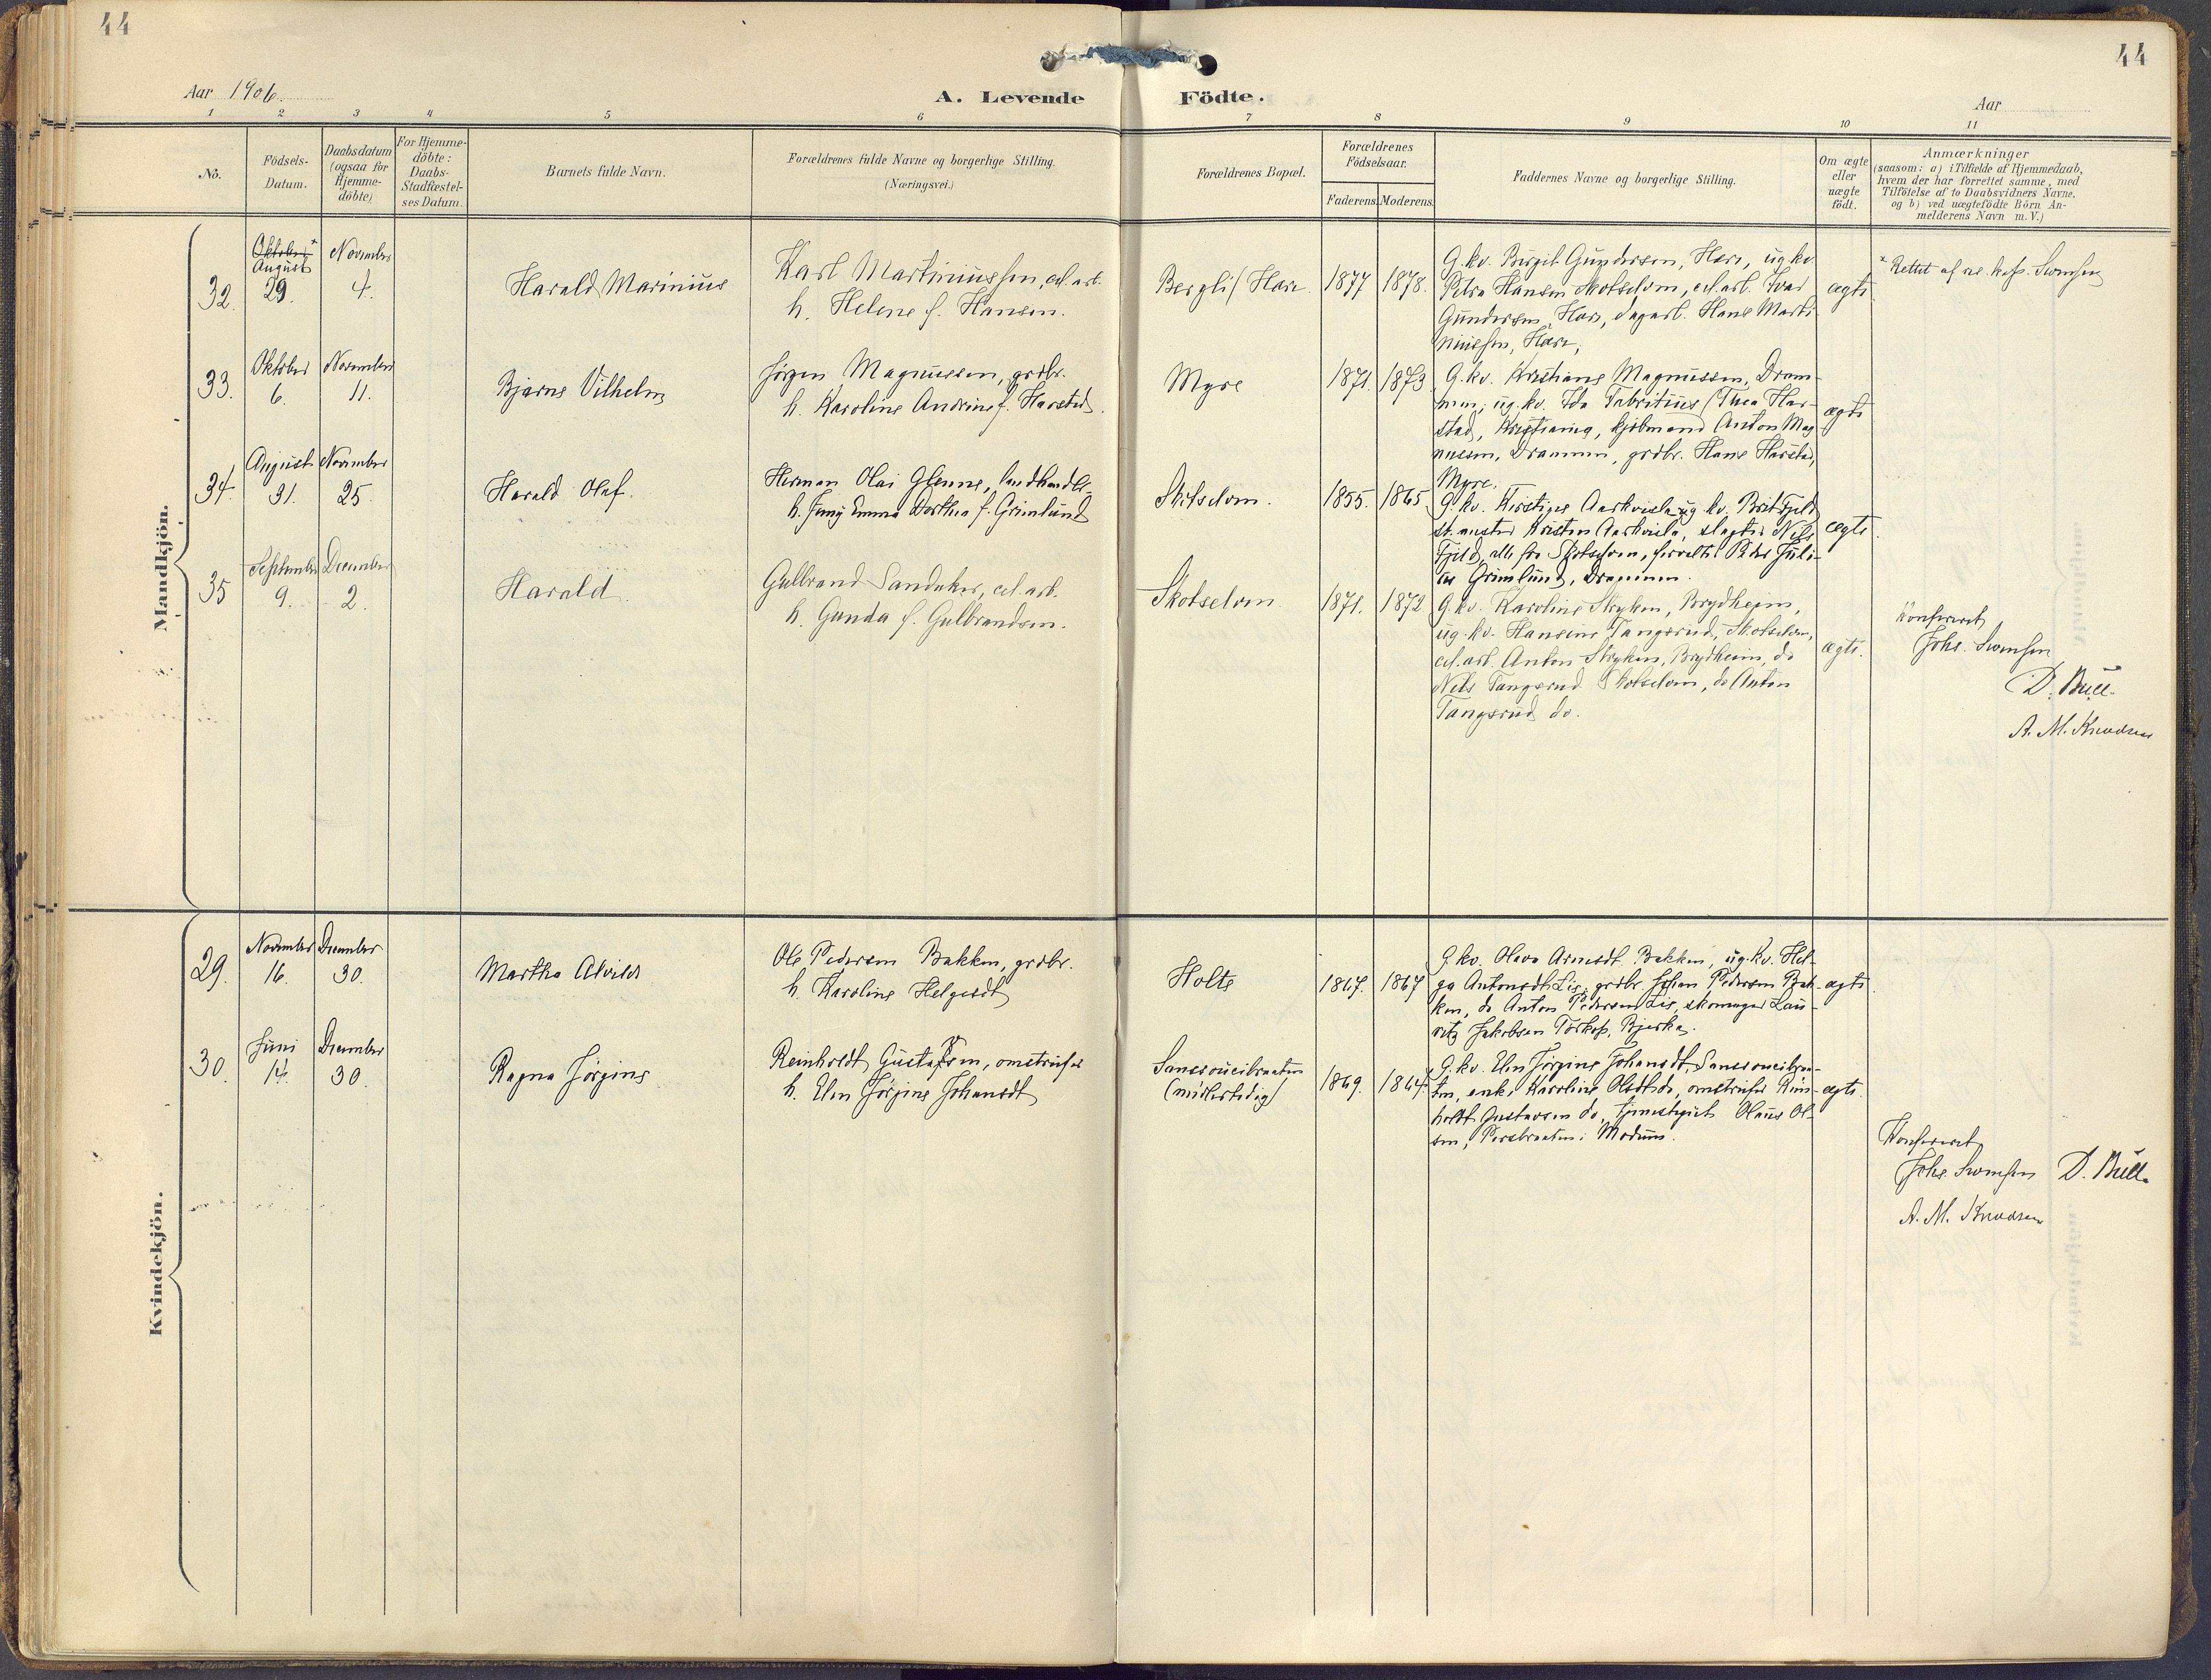 44
44
Aar 1906.
A. Levende Födte.
Aar
1 2 3 4 5 6 7 8 9 10 11
No.
Födsels-
Datum.
Daabsdatum
(ogsaa for
Hjemme-
döbte)
For Hjemme-
döbte:
Daabs-
Stadfæstel-
ses Datum.
Barnets fulde Navn.
Forældrenes fulde Navne og borgerlige Stilling.
(Næringsvei.)
Forældrenes Bopæl.
Forældrenes
Födselsaar.
Faderens. Moderens.
Faddernes Navne og borgerlige Stilling.
Om ægte
eller
uægte
födt.
Anmærkninger
(saasom: a) i Tilfælde af Hjemmedaab,
hvem der har forrettet samme, med
Tilföielse af to Daabsvidners Navne,
og b) ved uægtefödte Börn An-
melderens Navn m.V.)
Mandkjön.
32.
Oktober *
August
29.
November
4.
Harald Marinius
Karl Martiniussen, cel. arb.
h. Helene f. Hansen.
Bergli/Horn
1877
1878.
G. kv. Birgit Gundersen, Horn, ug kv
Petra Hansen Skotselven, cel. arb. Ivar
Gundersen, Horn, dagarb. Hans Marti-
niussen, Horn,
ægte
* Rettet af res. kap. Svensen
33.
Oktober
6.
November
11.
Bjarne Vilhelm
Jörgen Magnussen, grdbr.
h. Karoline Andrine f. Harstad.
Myre
1871.
1873
G. kv. Kristiane Magnussen, Dram-
men, ug. kv. Ida Fabritius (Thea Har-
stad, Kristiania, kjöbmand Anton Mag
nussen, Drammen, grdbr. Hans Harstad,
Myre.
ægte
34.
August
31.
November
25.
Harald Olaf.
Herman Olai Glenne, landhandler
h. Jenny Emma Dorthea f. Grimlund
Skotselven.
1855.
1865
G. kv. Kristine Aaskvisla, ug kv. Brit Fjeld
st. mester Kristen Aaskvisla, slagter Nils
Fjeld, alle fra Skotselven, forvalter Peder Juli-
us Grimlund, Drammen.
ægte.
35
September
9.
December
2.
Harald.
Gulbrand Sandaker, cel. arb.
h. Gunda f. Gulbrandsen.
Skotselven
1871.
1872
G. kv. Karoline Stryken, Brydheim,
ug. kv. Hansine Tangerud, Skotselven,
cel. arb. Anton Stryken, Brydheim, do
Nils Tangerud Skotselven, do Anton
Tangerud do.
ægte.
Konfereret
Johs. Svensen
D. Bull.
A. M. Knudsen
Kvindekjön.
29.
November
16.
December
30.
Martha Alvilde
Ole Pedersen Bakken, grdbr.
h. Karoline Helgesdt
Holte
1867.
1867
G. kv. Olava Arnesdt. Bakken, ug. kv. Hel-
ga Antonsdt. Lie, grdbr. Johan Pedersen Bak-
ken, do Anton Pedersen Lie, skomager Lau-
ritz Jakobsen Torkop, Bjerka.
ægte
30.
Juni
14.
December
30.
Ragna Jörgine
Reinholdt Gustavsen, omstreifer
h. Elen Jörgine Johansdt
Sanssoucibraaten
(midlertidig)
1869.
1864.
G. kv. Elen Jörgine Johansdt. Sanssoucibraa-
ten, enke Karoline Olsdt. do, omstreifer Rein-
holdt Gustavsen do, tjenestegut Olaus Ol-
sen, Persbraaten i Modum.
ægte.
Konfereret
Johs. Svensen D. Bull.
A. M. Knudsen